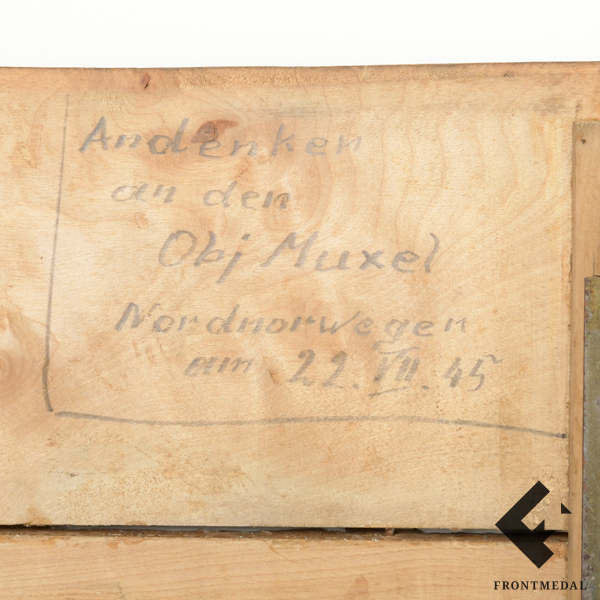 Andenken
an den
Obj Muxel
Nordnorwegen
am 22. VII. 45
FRONTMEDAL